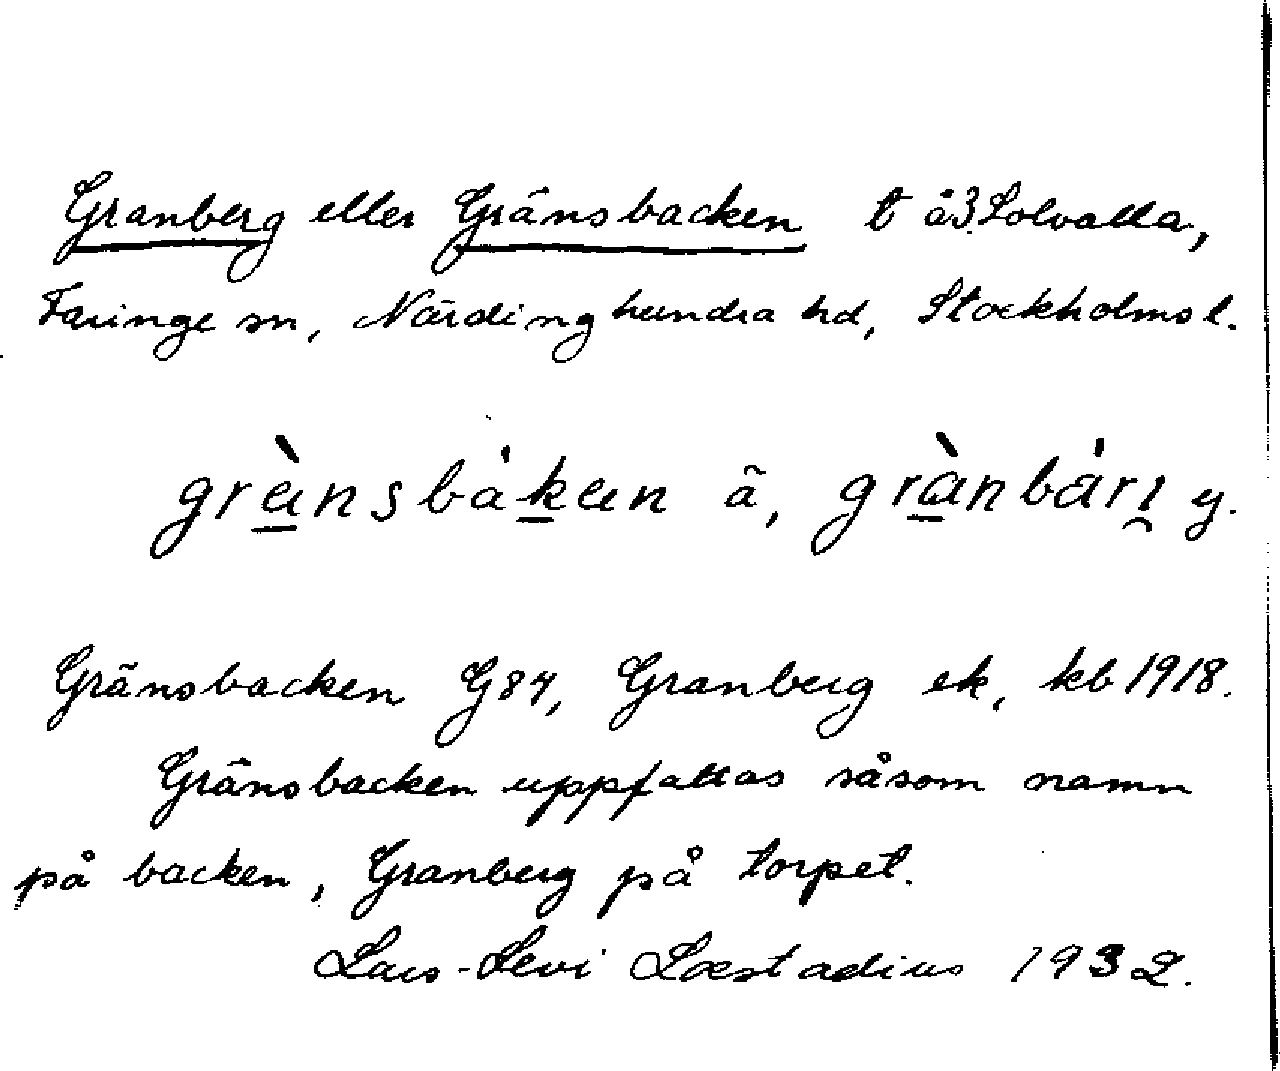 Granberg eller Gränsbacken t å 3 Solvalla,
Faringe sn, Närdinghundra hd, Stockholms l.
grànsbákæn ä, grànbárj y.
Gränsbacken G84, Granberg ek, kb 1918.
Gränsbacken uppfattas såsom namn
på backen, Granberg på torpet.
Lars-Levi Læstadius 1932.